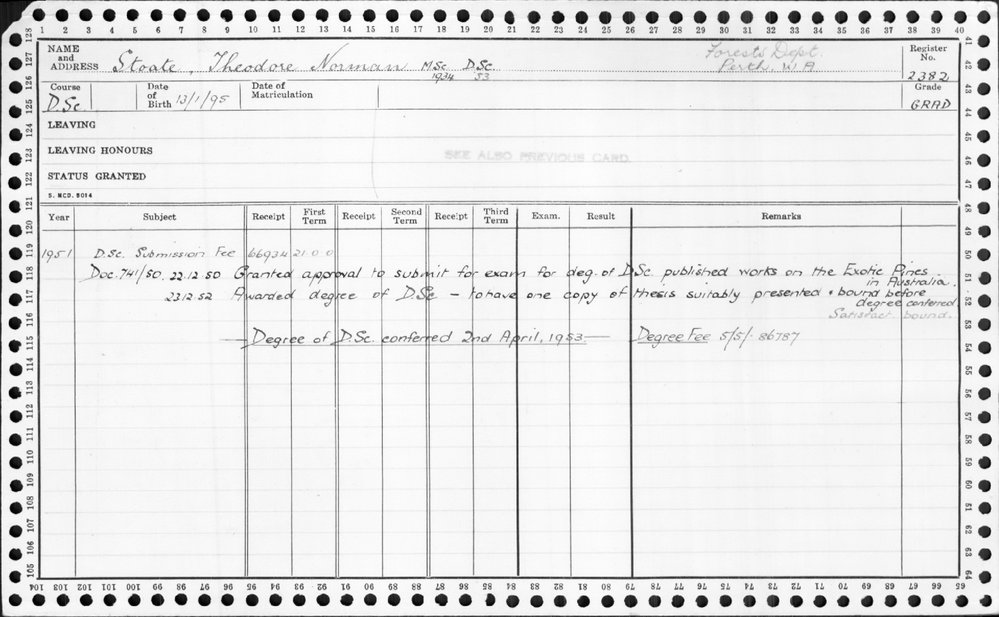 1 2 3 4 5 6 7 8 9 10 11 12 13 14 15 16 17 18 19 20 21 22 23 24 25 26 27 28 29 30 31 32 33 34 35 36 37 38 39 40
NAME and ADDRESS Stoate, Theodore Norman MSc 1934 DSc 53
Forests Dept.
Perth, W A
Register No. 2382
Course D.Sc. Date of Birth 13/1/95 Date of Matriculation Grade GRAD
LEAVING
LEAVING HONOURS
SEE ALSO PREVIOUS CARD.
STATUS GRANTED
S. MCD. 5014
Year Subject Receipt First Term Receipt Second Term Receipt Third Term Exam. Result Remarks
1951 D.Sc. Submission Fee 66934 21.0.0
Doc. 741/50. 22.12.50 Granted approval to submit for exam for deg. of D.Sc. published works on the Exotic Pines
in Australia.
23.12.52 Awarded degree of D.Sc — to have one copy of thesis suitably presented & bound before
degree conferred
Satisfact. bound.
— Degree of D.Sc. conferred 2nd April, 1953 — Degree Fee 5/5/- 86787
104 103 102 101 100 99 98 97 96 95 94 93 92 91 90 89 88 87 86 85 84 83 82 81 80 79 78 77 76 75 74 73 72 71 70 69 68 67 66 65
128 127 126 125 124 123 122 121 120 119 118 117 116 115 114 113 112 111 110 109 108 107 106 105
41 42 43 44 45 46 47 48 49 50 51 52 53 54 55 56 57 58 59 60 61 62 63 64